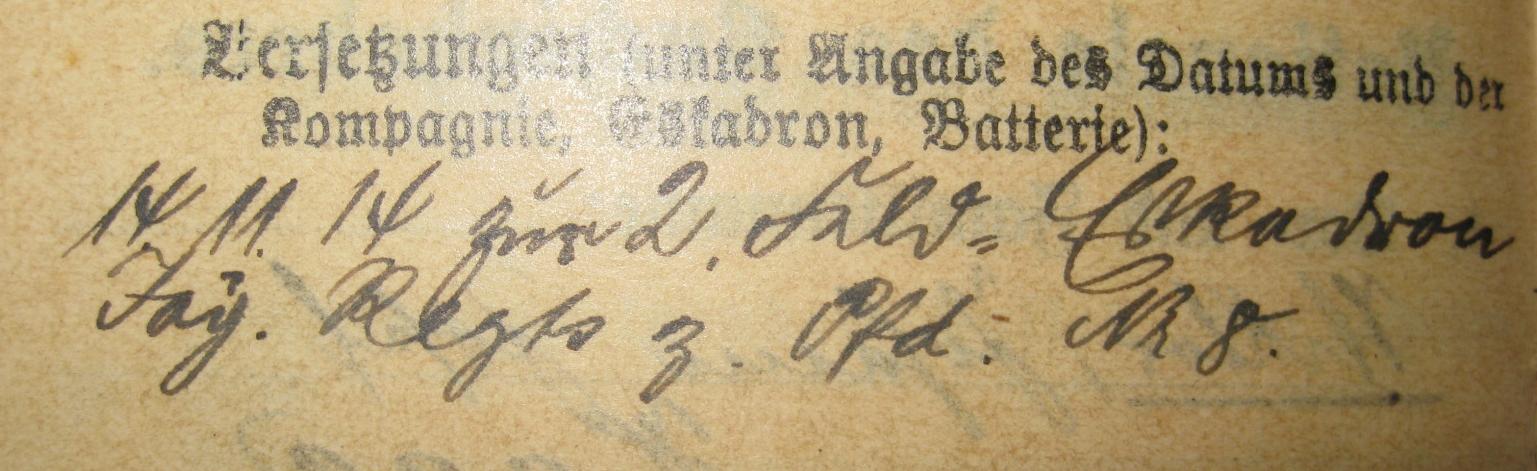 Versetzungen (unter Angabe des Datums und der
Kompagnie, Eskadron, Batterie):
14. 11. 14 zur 2. Feld= Eskadron
Jäg. Regts z. Pfd. Nr 8.